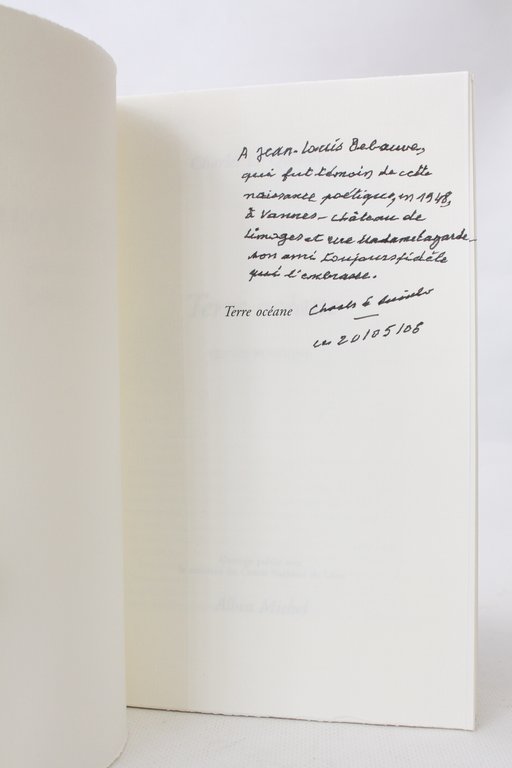 A Jean-Louis Debauve,
qui fut témoin de cette
naissance poétique, en 1948,
à Vannes - château de
Limoges et rue Madame Lagarde -
son ami toujours fidèle
qui l'embrasse.
Terre océane Charles le
20/05/06
Albin Michel